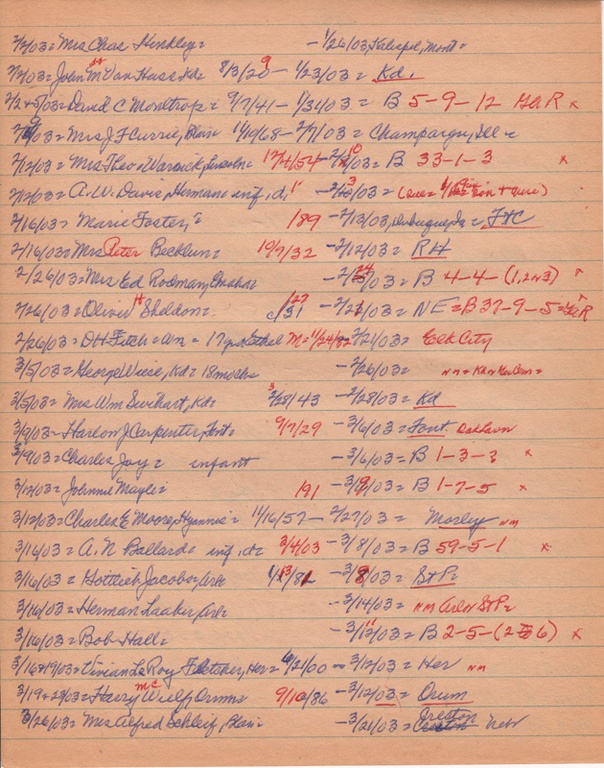 2/2/03 = Mrs Chas Hinkley = - 1/26/03, Kalispel, Mont =
2/2/03 = John M Van Hase Kd = 8/13/29 - 1/23/03 = Kd.
2/2 & 5/03 = David C Moultrop = 9/7/41 - 1/31/03 = B 5-9-12 GAR x
2/03 = Mrs J F Currie, Blair 11/10/68 - 2/7/03 = Champaign, Ill =
2/12/03 = Mrs Theo = Warrick, Lincoln = 12/4/54 - 2/10/03 = B 33-1-3 x
2/12/03 = A. W. Davis, Herman inf. d. - 2/3/03 = (
2/16/03 = Marie Foster, = 189 - 2/13/03, Dubuque, Ia = FtC
2/16/03 = Mrs Peter Becklun = 10/7/32 - 2/12/03 = RH
2/26/03 = Mrs Ed Rodman, Omaha = - 2/24/03 = B 4-4-(1,2 or 3)
2/26/03 = Oliver H Sheldon = c/31 - 2/21/03 = NE = B 37-9-5 = GAR
2/26/03 = DH Fitch = an = 17 yrs M = 1/24/ - 2/21/03 = Elk City
3/5/03 = George Weise, Kd = 18 mochs - 2/26/03 = nm =
3/5/03 = Mrs Wm Swihart, Kd = 3/28/43 - 2/28/03 = Kd
3/9/03 = Harlow J Carpenter, Font = 9/7/29 - 3/6/03 = Font Oaklawn
3/9/03 = Charles Jay = infant - 3/6/03 = B 1-3-3 x
3/12/03 = Johnnie Mayle = 191 - 3/9/03 = B 1-7-5 x
3/12/03 = Charles E Moore, Hyannis = 11/16/57 - 2/27/03 = Morley nm
3/16/03 = A. N Ballard = inf. d = 3/4/03 - 3/8/03 = B 59-5-1 x
3/16/03 = Gottlieb Jacobs, Arl = 1/13/82 - 3/8/03 = StP =
3/16/03 = Herman Laaker, Arl = - 3/14/03 = nm Arl or StP =
3/16/03 = Bob Hall = - 3/11/03 = B 2-5-(2 to 6) x
3/16 & 19/03 = Vivian La Roy Fletcher, Her = 6/2/00 - 3/12/03 = Her nm
3/19 & 23/03 = Harry McWielp, Orum = 9/10/86 - 3/12/03 = Orum
3/26/03 = Mrs Alfred Schleif, Blair = - 3/21/03 = Creston Nebr